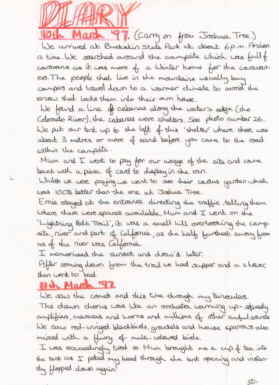 DIARY
10th March 97. (Carry on from Joshua Tree.)
We arrived at Buckskin State Park at about 6 p.m. Arizon
a time. We searched around the campsite which was full of
caravans as it was more of a Winter home for the caravan
ers. The people that live in the mountains usually buy
campers and travel down to a warmer climate to avoid the
snow that locks them into their own home.
We found a line of cabanas along the water's edge (the
Colorado River), the cabanas were shelters. See photo number 26.
We put our tent up to the left of this 'shelter' where there was
about 3 metres or more of sand before you came to the road
within the campsite.
Mum and I went to pay for our usage of the site and came
back with a piece of card to display in the van.
Whilst we were paying we went to see their cactus garden which
was 100% better than the one at Joshua Tree.
Ernie stayed at the entrance directing the traffic, telling them
where there were spaces available. Mum and I went on the
'Lightning Bolt Trail', it was a small hill overlooking the camp
site, river and part of California, as the half furthest away from
us of the river was California.
I memorised the sunset and drew it later.
After coming down from the trail we had supper and a shower
then went to bed.
11th March 97.
We saw the comet and this time through my binoculars.
The dawn chorus was like an orchestra warming up - already
amplifiers, maracas and worms and millions of other awful noises
We saw red-winged blackbirds, grackels and house sparrows also
mixed with a flurry of multi-coloured birds.
I was exceedingly tired so Mum brought me a cup of tea into
the tent as I poked my head through the tent opening and violen-
tly flopped down again.